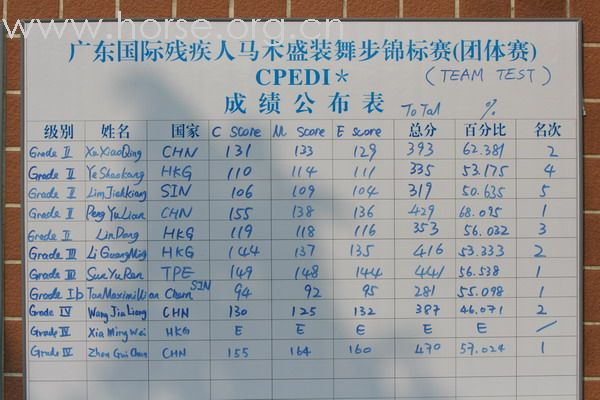 www.horse.org.cn
广东国际残疾人马术盛装舞步锦标赛(团体赛)
CPEDI* (TEAM TEST)
成绩公布表 ToTal %
级别 姓名 国家 C Score M Score E score 总分 百分比 名次
Grade II XuXiaoQing CHN 131 133 129 393 62.381 2
Grade II YeShaokang HKG 110 114 111 335 53.175 4
Grade II LimJiahkiang SIN 106 109 104 319 50.635 5
Grade II PengYuLian CHN 155 138 136 429 68.095 1
Grade II LinDang HKG 119 118 116 353 56.032 3
Grade III LiGuangMing HKG 144 137 135 416 53.333 2
Grade III SunYuRan TPE 149 148 144 441 56.538 1
Grade Ib TanMaximillian Chern SIN 94 92 95 281 55.098 1
Grade IV WangJiaLiang CHN 130 125 132 387 46.071 2
Grade IV Xia Ming Wei HKG E E E E E /
Grade IV Zhen Gui Chan CHN 155 164 160 470 57.024 1